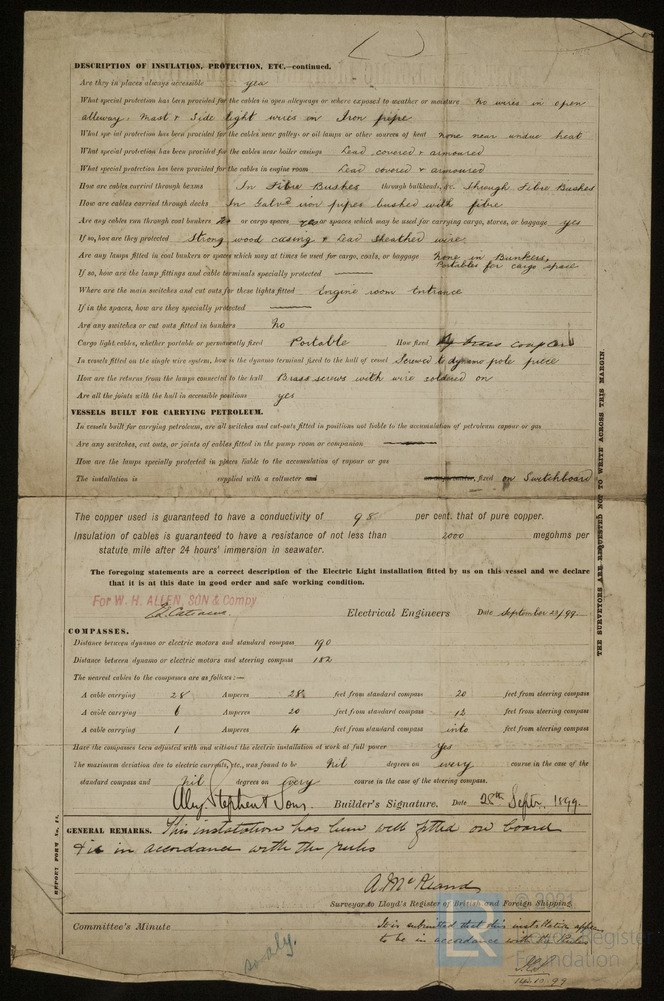 DESCRIPTION OF INSULATION, PROTECTION, ETC.—continued.
Are they in places always accessible yes
What special protection has been provided for the cables in open alleyways or where exposed to weather or moisture No wires in open
alleway, Mast & Side light wires in Iron pipe
What special protection has been provided for the cables near galleys or oil lamps or other sources of heat none near undue heat
What special protection has been provided for the cables near boiler casings Lead covered & armoured
What special protection has been provided for the cables in engine room Lead covered & armoured
How are cables carried through beams In Fibre Bushes through bulkheads, &c. Through Fibre Bushes
How are cables carried through decks In Galvd iron pipes bushed with fibre
Are any cables run through coal bunkers No or cargo spaces yes or spaces which may be used for carrying cargo, stores, or baggage yes
If so, how are they protected Strong wood casing & Lead Sheathed wire
Are any lamps fitted in coal bunkers or spaces which may at times be used for cargo, coals, or baggage None in Bunkers,
Portables for cargo space
If so, how are the lamp fittings and cable terminals specially protected
Where are the main switches and cut outs for these lights fitted Engine room entrance
If in the spaces, how are they specially protected
Are any switches or cut outs fitted in bunkers No
Cargo light cables, whether portable or permanently fixed Portable How fixed By brass couplers
In vessels fitted on the single wire system, how is the dynamo terminal fixed to the hull of vessel Screwed to dynamo pole piece
How are the returns from the lamps connected to the hull Brass screws with wire soldered on
Are all the joints with the hull in accessible positions yes
VESSELS BUILT FOR CARRYING PETROLEUM.
In vessels built for carrying petroleum, are all switches and cut-outs fitted in positions not liable to the accumulation of petroleum vapour or gas
Are any switches, cut outs, or joints of cables fitted in the pump room or companion
How are the lamps specially protected in places liable to the accumulation of vapour or gas
The installation is supplied with a voltmeter and an amperemeter, fixed on Switchboard
The copper used is guaranteed to have a conductivity of 98 per cent. that of pure copper.
Insulation of cables is guaranteed to have a resistance of not less than 2000 megohms per
statute mile after 24 hours' immersion in seawater.
The foregoing statements are a correct description of the Electric Light installation fitted by us on this vessel and we declare
that it is at this date in good order and safe working condition.
For W. H. ALLEN, SON & Compy
Electrical Engineers Date September 22/99
COMPASSES.
Distance between dynamo or electric motors and standard compass 190
Distance between dynamo or electric motors and steering compass 182
The nearest cables to the compasses are as follows:—
A cable carrying 28 Amperes 28 feet from standard compass 20 feet from steering compass
A cable carrying 6 Amperes 20 feet from standard compass 12 feet from steering compass
A cable carrying 1 Amperes 4 feet from standard compass into feet from steering compass
Have the compasses been adjusted with and without the electric installation at work at full power Yes
The maximum deviation due to electric currents, etc., was found to be Nil degrees on every course in the case of the
standard compass and nil degrees on every course in the case of the steering compass.
Alex. Stephen & Sons. Builder's Signature. Date 28th Septr, 1899.
GENERAL REMARKS. This installation has been well fitted on board
& is in accordance with the rules
Surveyor to Lloyd's Register of British and Foreign Shipping.
Committee's Minute
It is submitted that this installation appears
to be in accordance with the Rules
14.10.99
THE SURVEYORS ARE REQUESTED NOT TO WRITE ACROSS THIS MARGIN.
REPORT FORM No. 14.
LR
© 2021
Lloyd's Register
Foundation